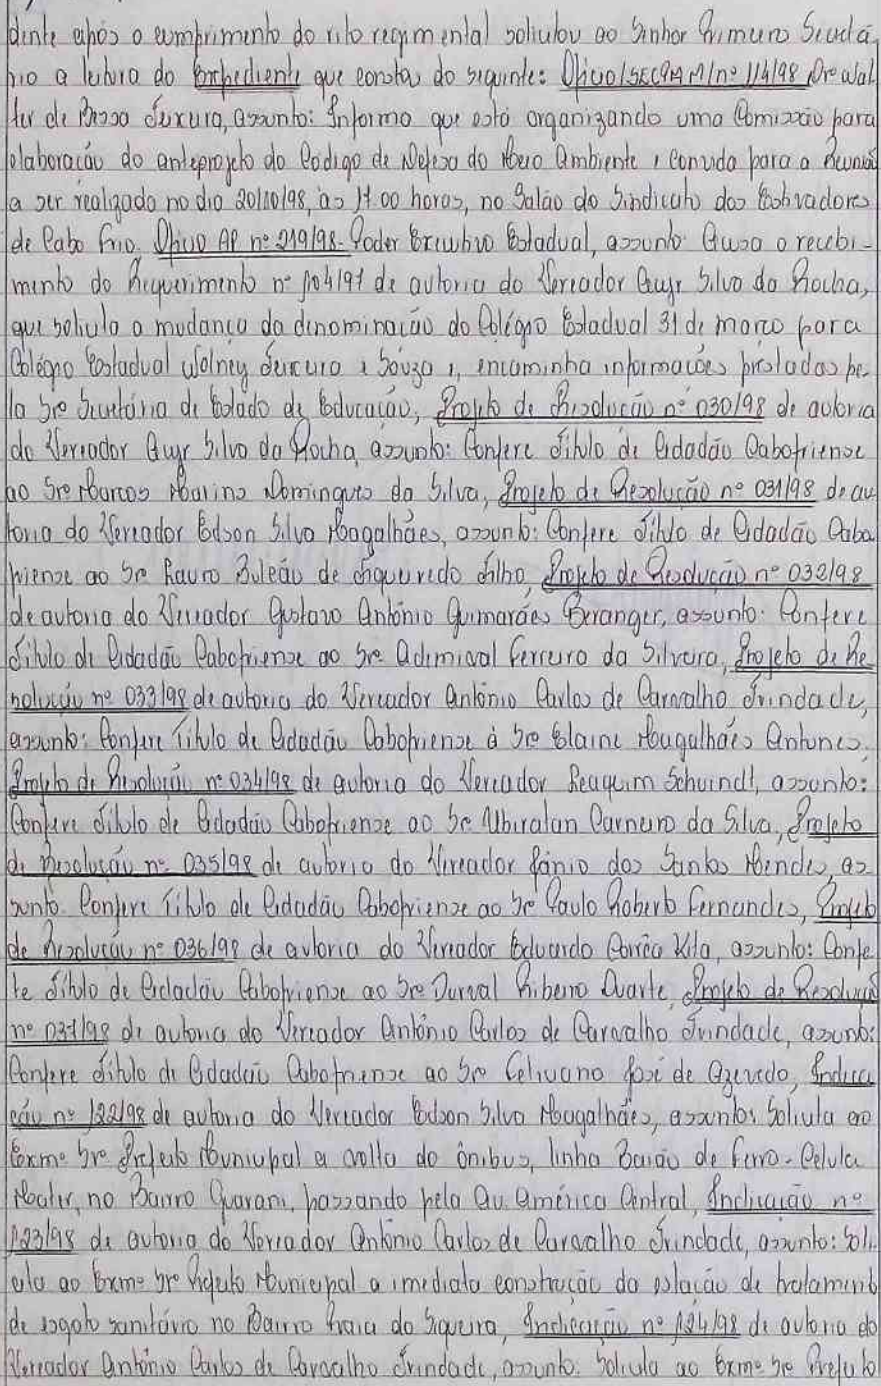 dente após o cumprimento do rito regimental solicitou ao Senhor Primeiro Secretá
rio a leitura do Expediente que consta do seguinte: Ofício/SECMAM/nº 114/98 Dro Wal
ter de Bessa Teixeira, assunto: Informa que está organizando uma Comissão para
elaboração do anteprojeto do Código de Defesa do Meio Ambiente e convida para a Reunião
a ser realizado no dia 20/10/98, às 17:00 horas, no Salão do Sindicato dos Estivadores
de Cabo Frio. Ofício AP nº 219/98 - Poder Executivo Estadual, assunto: Acusa o recebi-
mento do Requerimento nº 104/97 de autoria do Vereador Acyr Silva da Rocha,
que solicita a mudança da denominação do Colégio Estadual 31 de março para
Colégio Estadual Wolney Teixeira e Souza e, encaminha informações prestadas pe-
la Sra Secretária de Estado de Educação, Projeto de Resolução nº 030/98 de autoria
do Vereador Acyr Silva da Rocha, assunto: Confere Título de Cidadão Cabofriense
ao Sro Marcos Marins Domingues da Silva, Projeto de Resolução nº 031/98 de au
toria do Vereador Edson Silva Magalhães, assunto: Confere Título de Cidadão Cabo
friense ao Sro Rauro Buleão de Figueiredo Filho, Projeto de Resolução nº 032/98
de autoria do Vereador Gustavo Antônio Guimarães Beranger, assunto: Confere
Título de Cidadão Cabofriense ao Sro Adimival Ferreira da Silveira, Projeto de Re
solução nº 033/98 de autoria do Vereador Antônio Carlos de Carvalho Trindade,
assunto: Confere Título de Cidadão Cabofriense à Sra Elaine Magalhães Antunes,
Projeto de Resolução nº 034/98 de autoria do Vereador Reaquim Schuindt, assunto:
Confere Título de Cidadão Cabofriense ao Sr Ubiratan Carneiro da Silva, Projeto
de Resolução nº 035/98 de autoria do Vereador Jânio dos Santos Mendes, as
sunto: Confere Título de Cidadão Cabofriense ao Sro Paulo Roberto Fernandes, Projeto
de Resolução nº 036/98 de autoria do Vereador Eduardo Corrêa Kita, assunto: Confe
re Título de Cidadão Cabofriense ao Sro Durval Ribeiro Duarte, Projeto de Resolução
nº 037/98 de autoria do Vereador Antônio Carlos de Carvalho Trindade, assunto:
Confere Título de Cidadão Cabofriense ao Sro Celivano José de Azevedo, Indica
ção nº 122/98 de autoria do Vereador Edson Silva Magalhães, assunto: Solicita ao
Exmº Sro Prefeito Municipal a volta do ônibus, linha Barão de Ferro - Celula
Mater, no Bairro Guarani, passando pela Av. América Central, Indicação nº
123/98 de autoria do Vereador Antônio Carlos de Carvalho Trindade, assunto: Soli
cita ao Exmº Sro Prefeito Municipal a imediata construção da estação de tratamento
de esgoto sanitário no Bairro Praia do Siqueira, Indicação nº 124/98 de autoria do
Vereador Antônio Carlos de Carvalho Trindade, assunto: Solicita ao Exmº Sro Prefeito